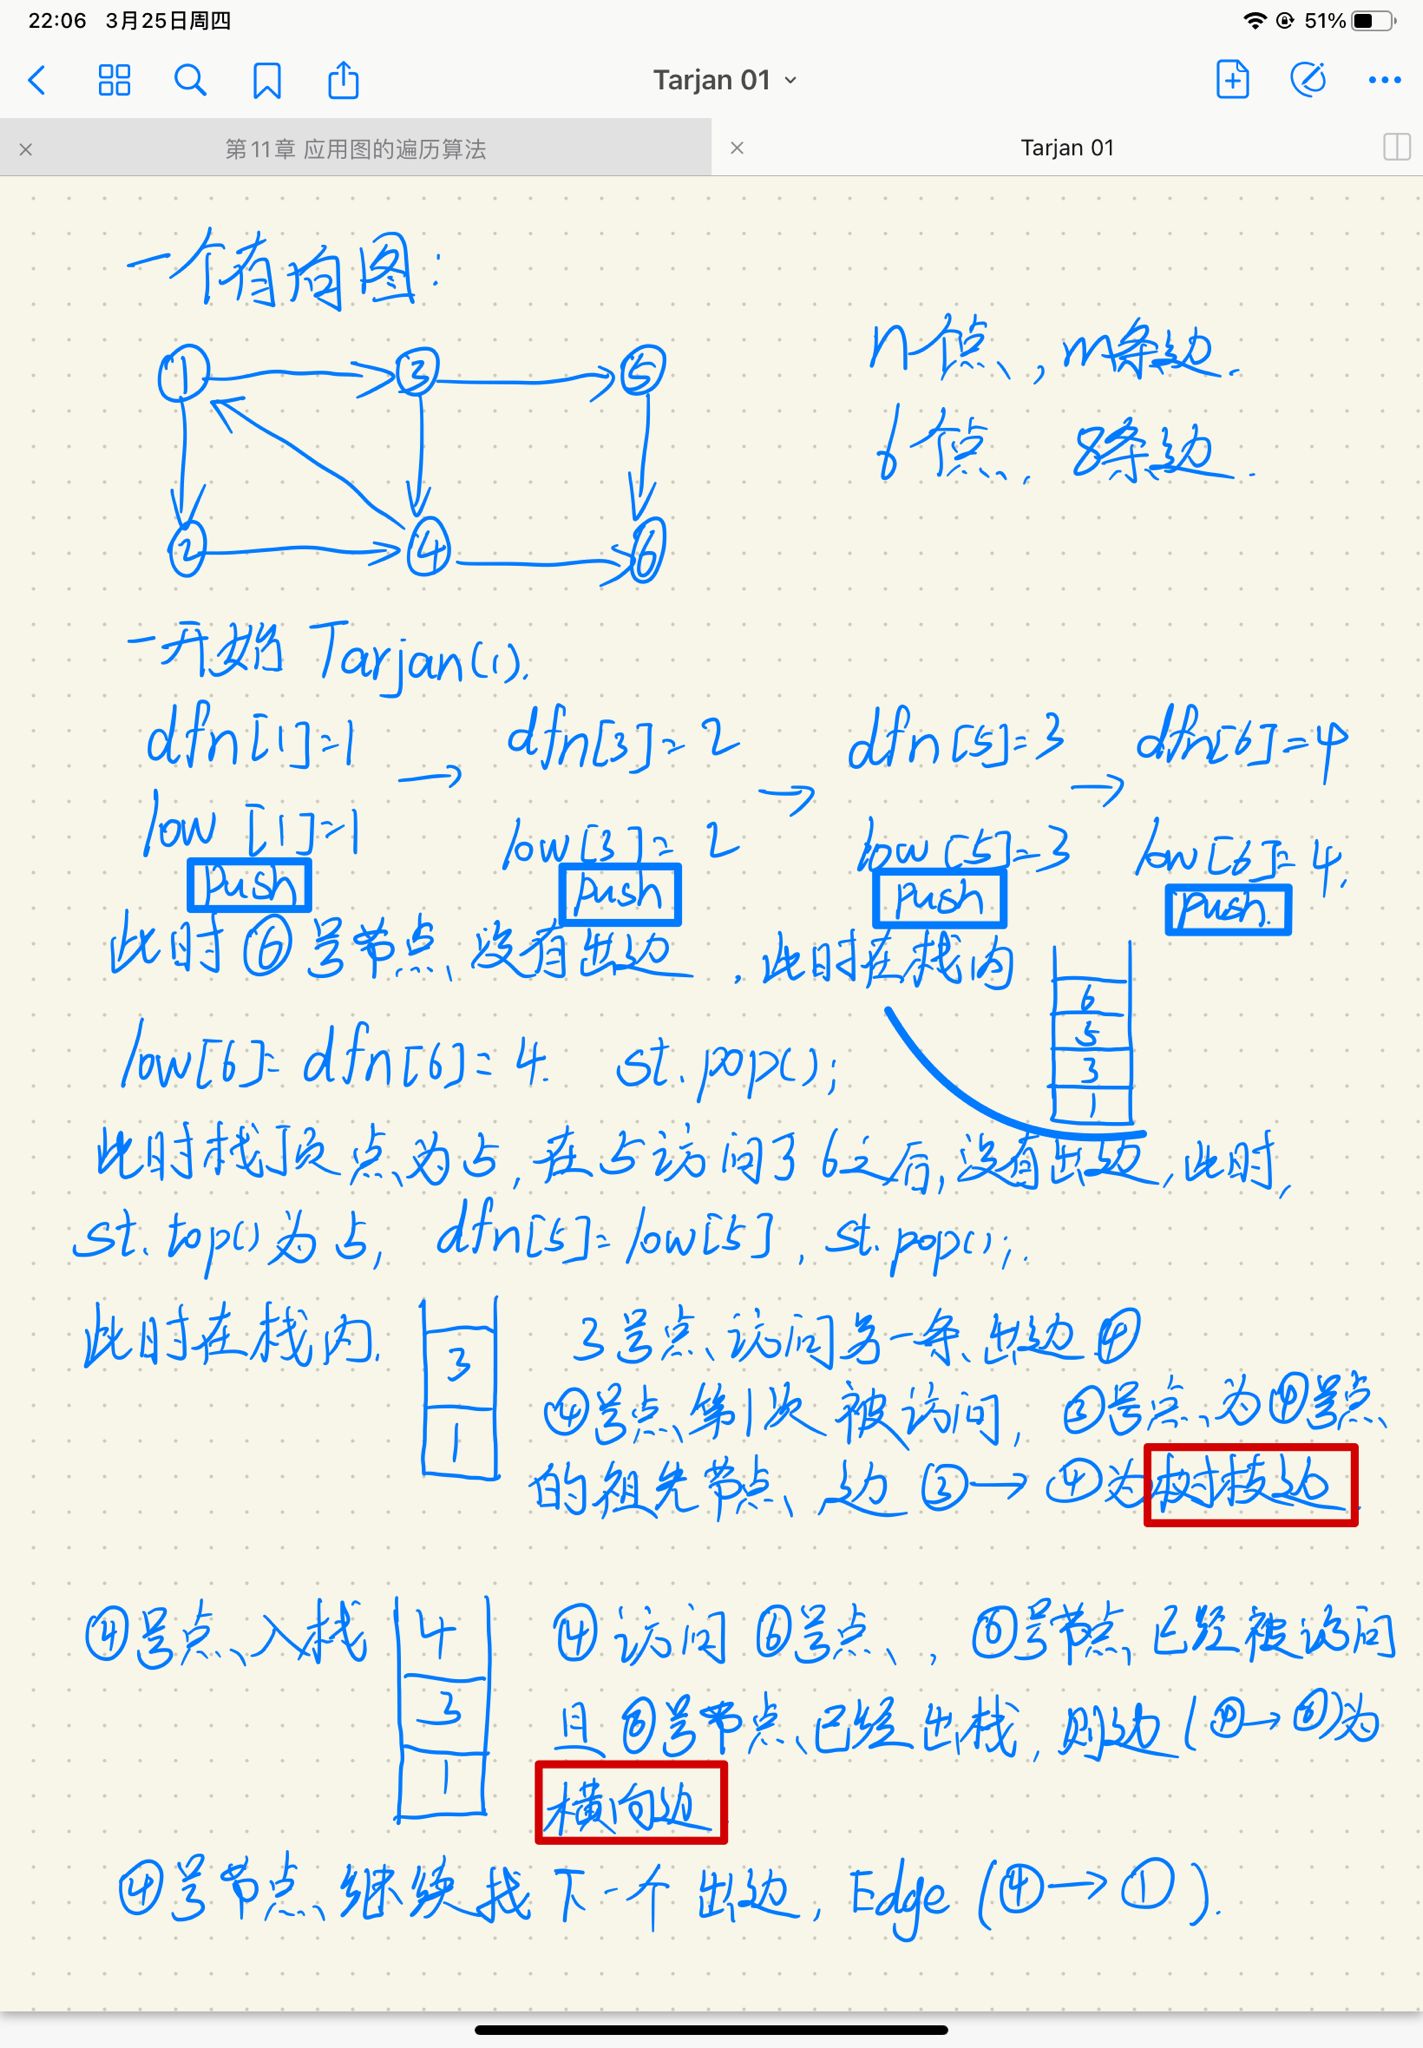 22:06 3月25日周四 51%
Tarjan 01
第11章 应用图的遍历算法
Tarjan 01
一个有向图：
n个点，m条边.
6个点，8条边.
① ③ ⑤
② ④ ⑥
一开始 Tarjan(1).
dfn[1]=1 → dfn[3]=2 → dfn[5]=3 → dfn[6]=4
low[1]=1 low[3]=2 low[5]=3 low[6]=4.
push push push push.
此时⑥号节点没有出边，此时在栈内
6
5
3
1
low[6]=dfn[6]=4. st.pop();
此时栈顶点为5,在5访问了6之后,没有出边,此时,
st.top()为5, dfn[5]=low[5], st.pop();.
此时在栈内.
3
1
3号点访问另一条出边④
④号点第1次被访问, ③号点为④号点
的祖先节点、边③→④为树枝边.
④号点入栈
4
3
1
④访问⑥号点, ⑥号节点已经被访问
且⑥号节点已经出栈,则边(④→⑥)为
横向边
④号节点继续找下一个出边, Edge (④→①).